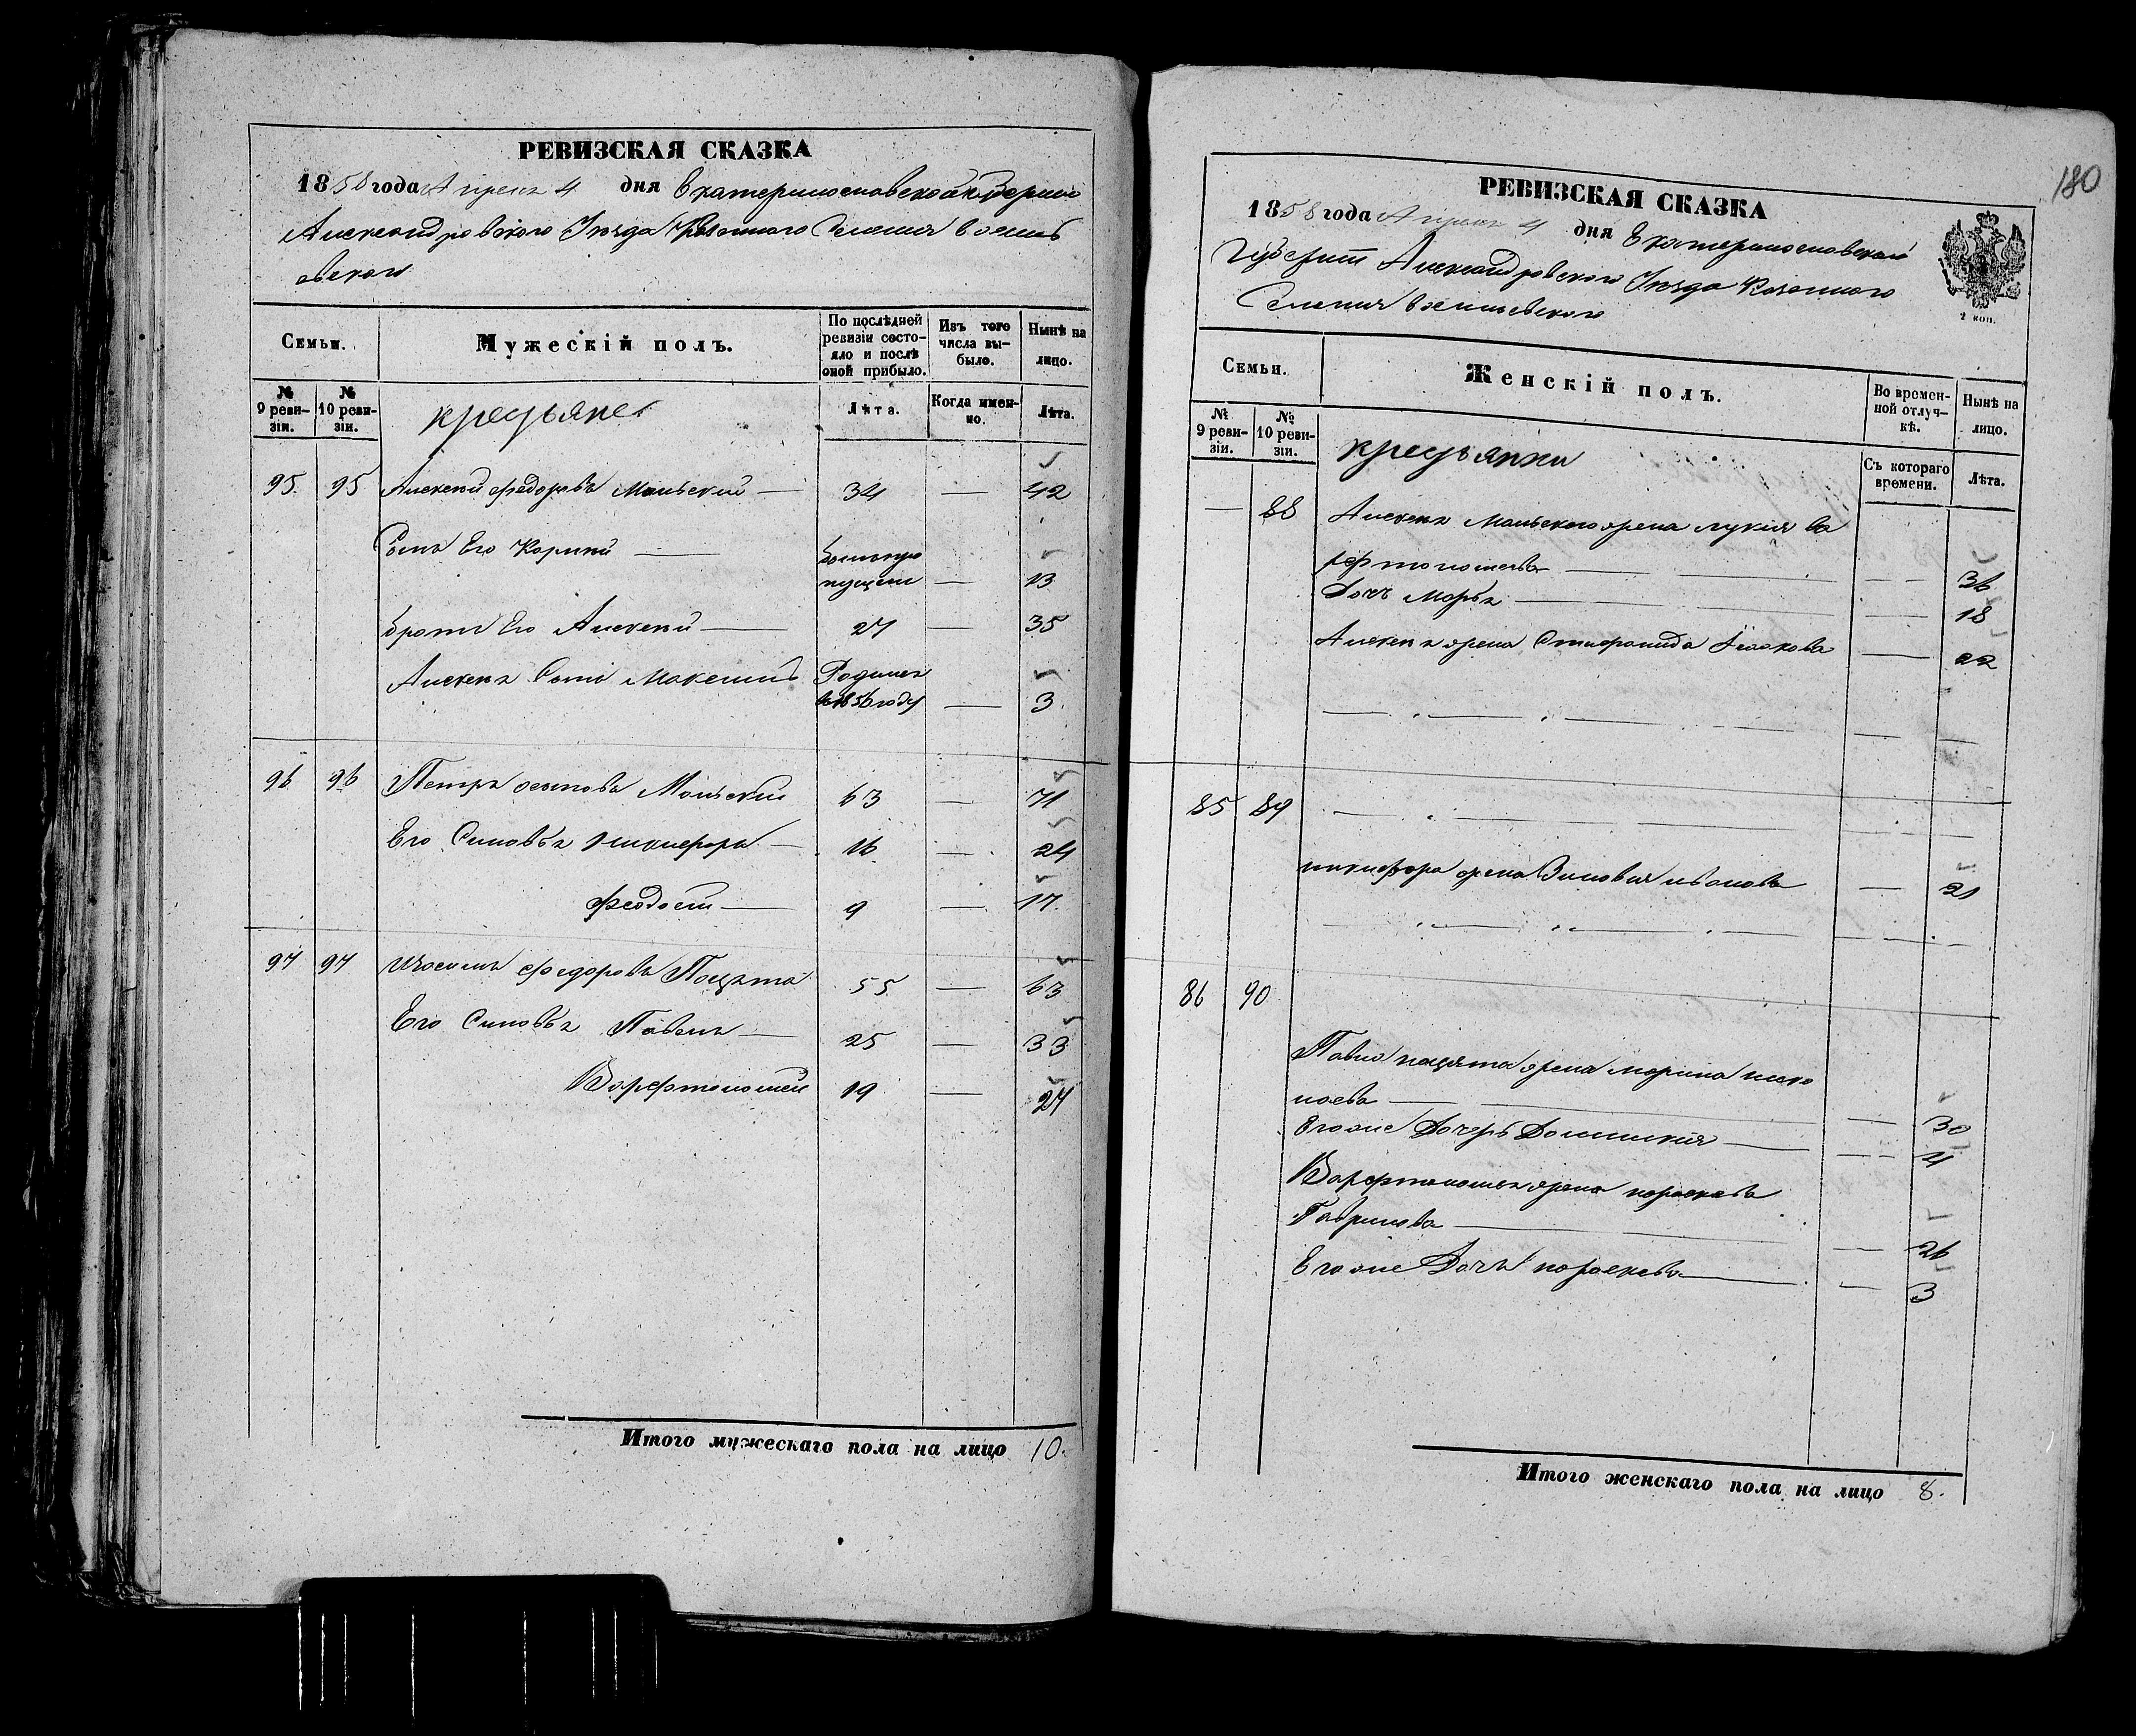 РЕВИЗСКАЯ СКАЗКА
1858 года Апреля 4 дня Екатеринославской Губернии
Александровского Уезда Казенного Селения Василь
евского
Семьи.
Мужескій полъ.
По послѣдней
ревизіи состо-
яло и послѣ
оной прибыло.
Изъ того
числа вы-
было.
Нынѣ на
лицо.
№
9 реви-
зіи.
№
10 реви-
зіи.
крестьяне
Лѣта.
Когда имен-
но.
Лѣта.
95 95 Алексей Федоровъ Мальский 34 — 42
Сынъ Его Корней был про
пущен — 13
братъ Его Алексей 27 — 35
Алексея Сынъ Максимъ Родился
в 1856 году — 3
96 96 Петръ Осиповъ Мальский 63 — 71
Его Сыновья Никифоръ 16 — 24
Феодосий 9 — 17
97 97 Федоровъ Пацята 55 — 63
Его Сыновья Павелъ 25 — 33
Варфтоломей 19 — 27
Итого мужескаго пола на лицо 10.
180
РЕВИЗСКАЯ СКАЗКА
1858 года Апреля 4 дня Екатеринославской
Губернии Александровского Уезда Казенного
Селения Васильевского
2 коп.
Семьи.
Женскій полъ.
Во времен-
ной отлуч-
кѣ.
Нынѣ на
лицо.
№
9 реви-
зіи.
№
10 реви-
зіи.
крестьянки
Съ котораго
времени.
Лѣта.
— 88 Алексея Мальского жена Лукия Ва
рфтоломеева — 36
Дочь Марья — 18
Алексея жена Степанида — 22
85 89
Никифора жена Зиновия Иванова — 21
86 90
Павла Пацята жена Марина Нико
лаева — 30
Его же Дочерь Домникия — 4
Варфтоломея жена Параскева
Гаврилова — 26
Его же Дочь Параскева — 3
Итого женскаго пола на лицо 8.